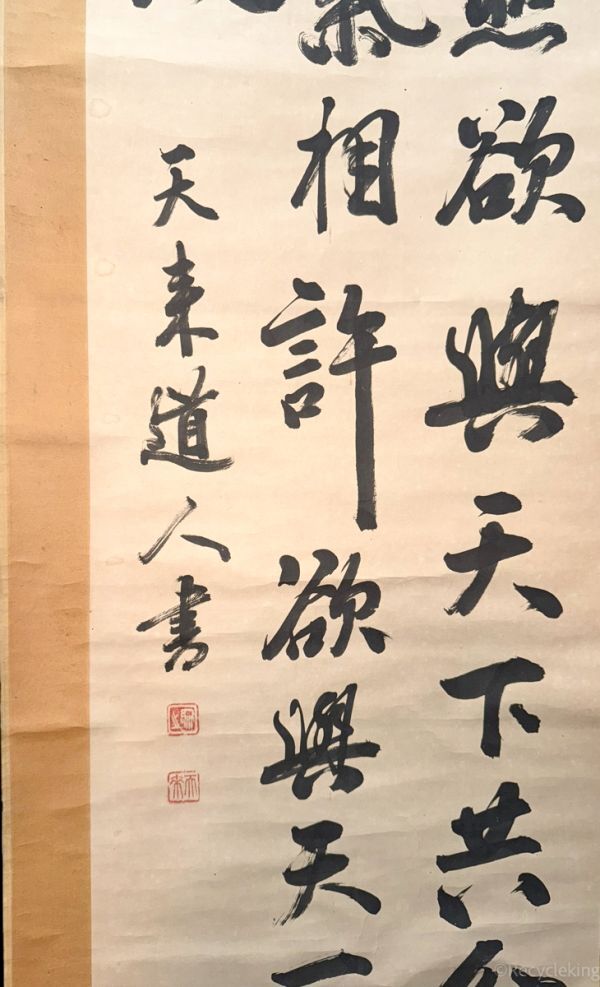 欲與天下共
氣相許欲與天
天来道人書
©Recycleking